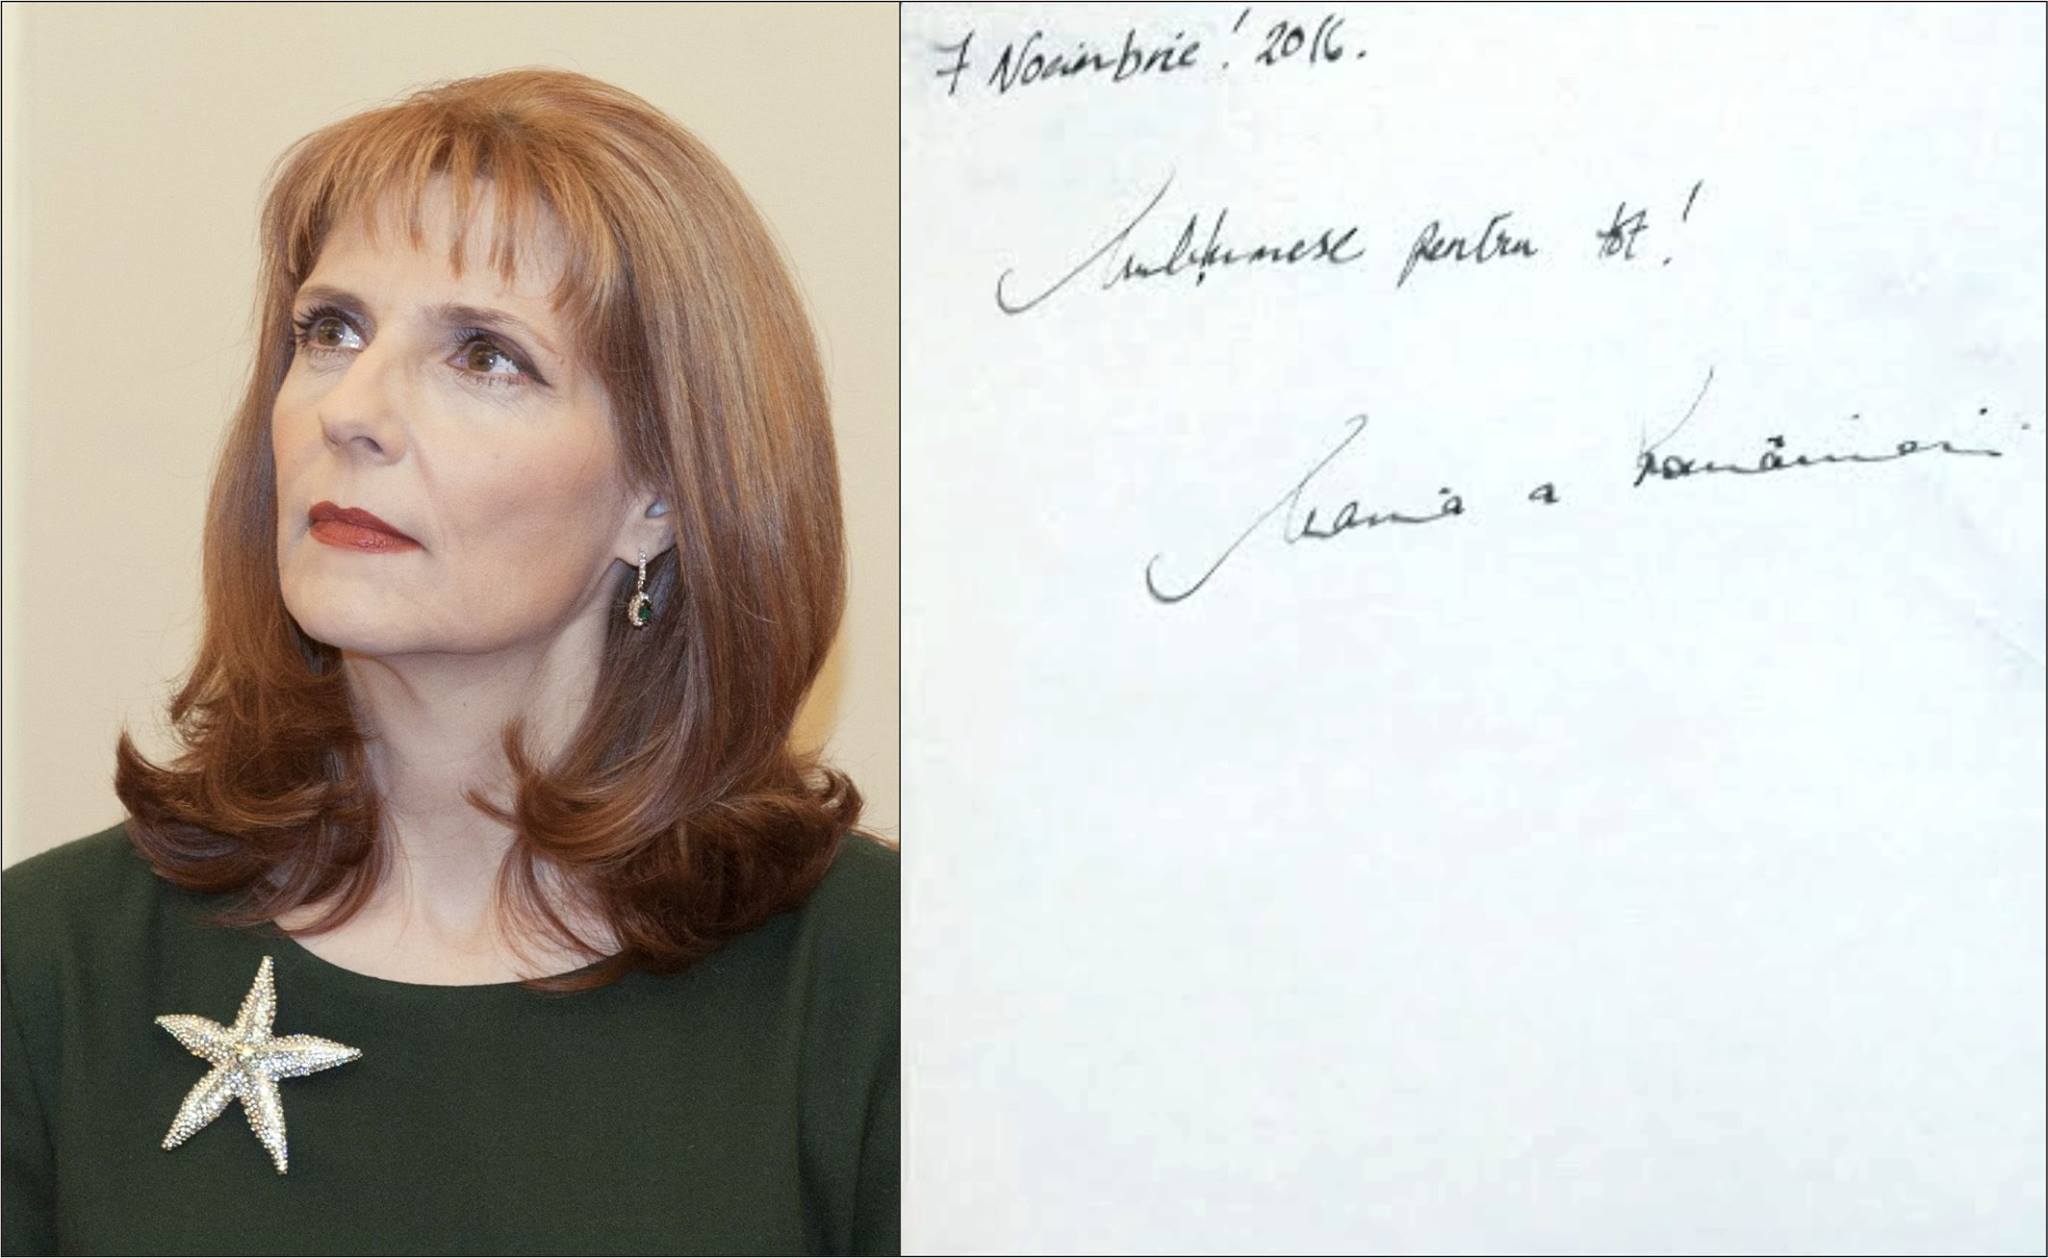 7 Noiembrie! 2016.
Mulțumesc pentru tot!
Maria a României